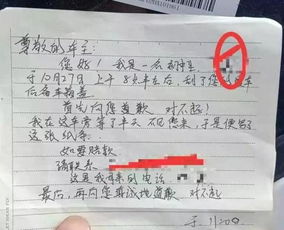 尊敬的车主:
您好! 我是一名
于10月27日上午8点左右, 刮了您
后备车箱盖
首先向您道歉 对不起!
我在这车旁等了半天 不见您来, 于是便写了
这张纸条.
如要赔款
请联系
这是我 的电话
最后, 再向您真诚地道歉 对不起